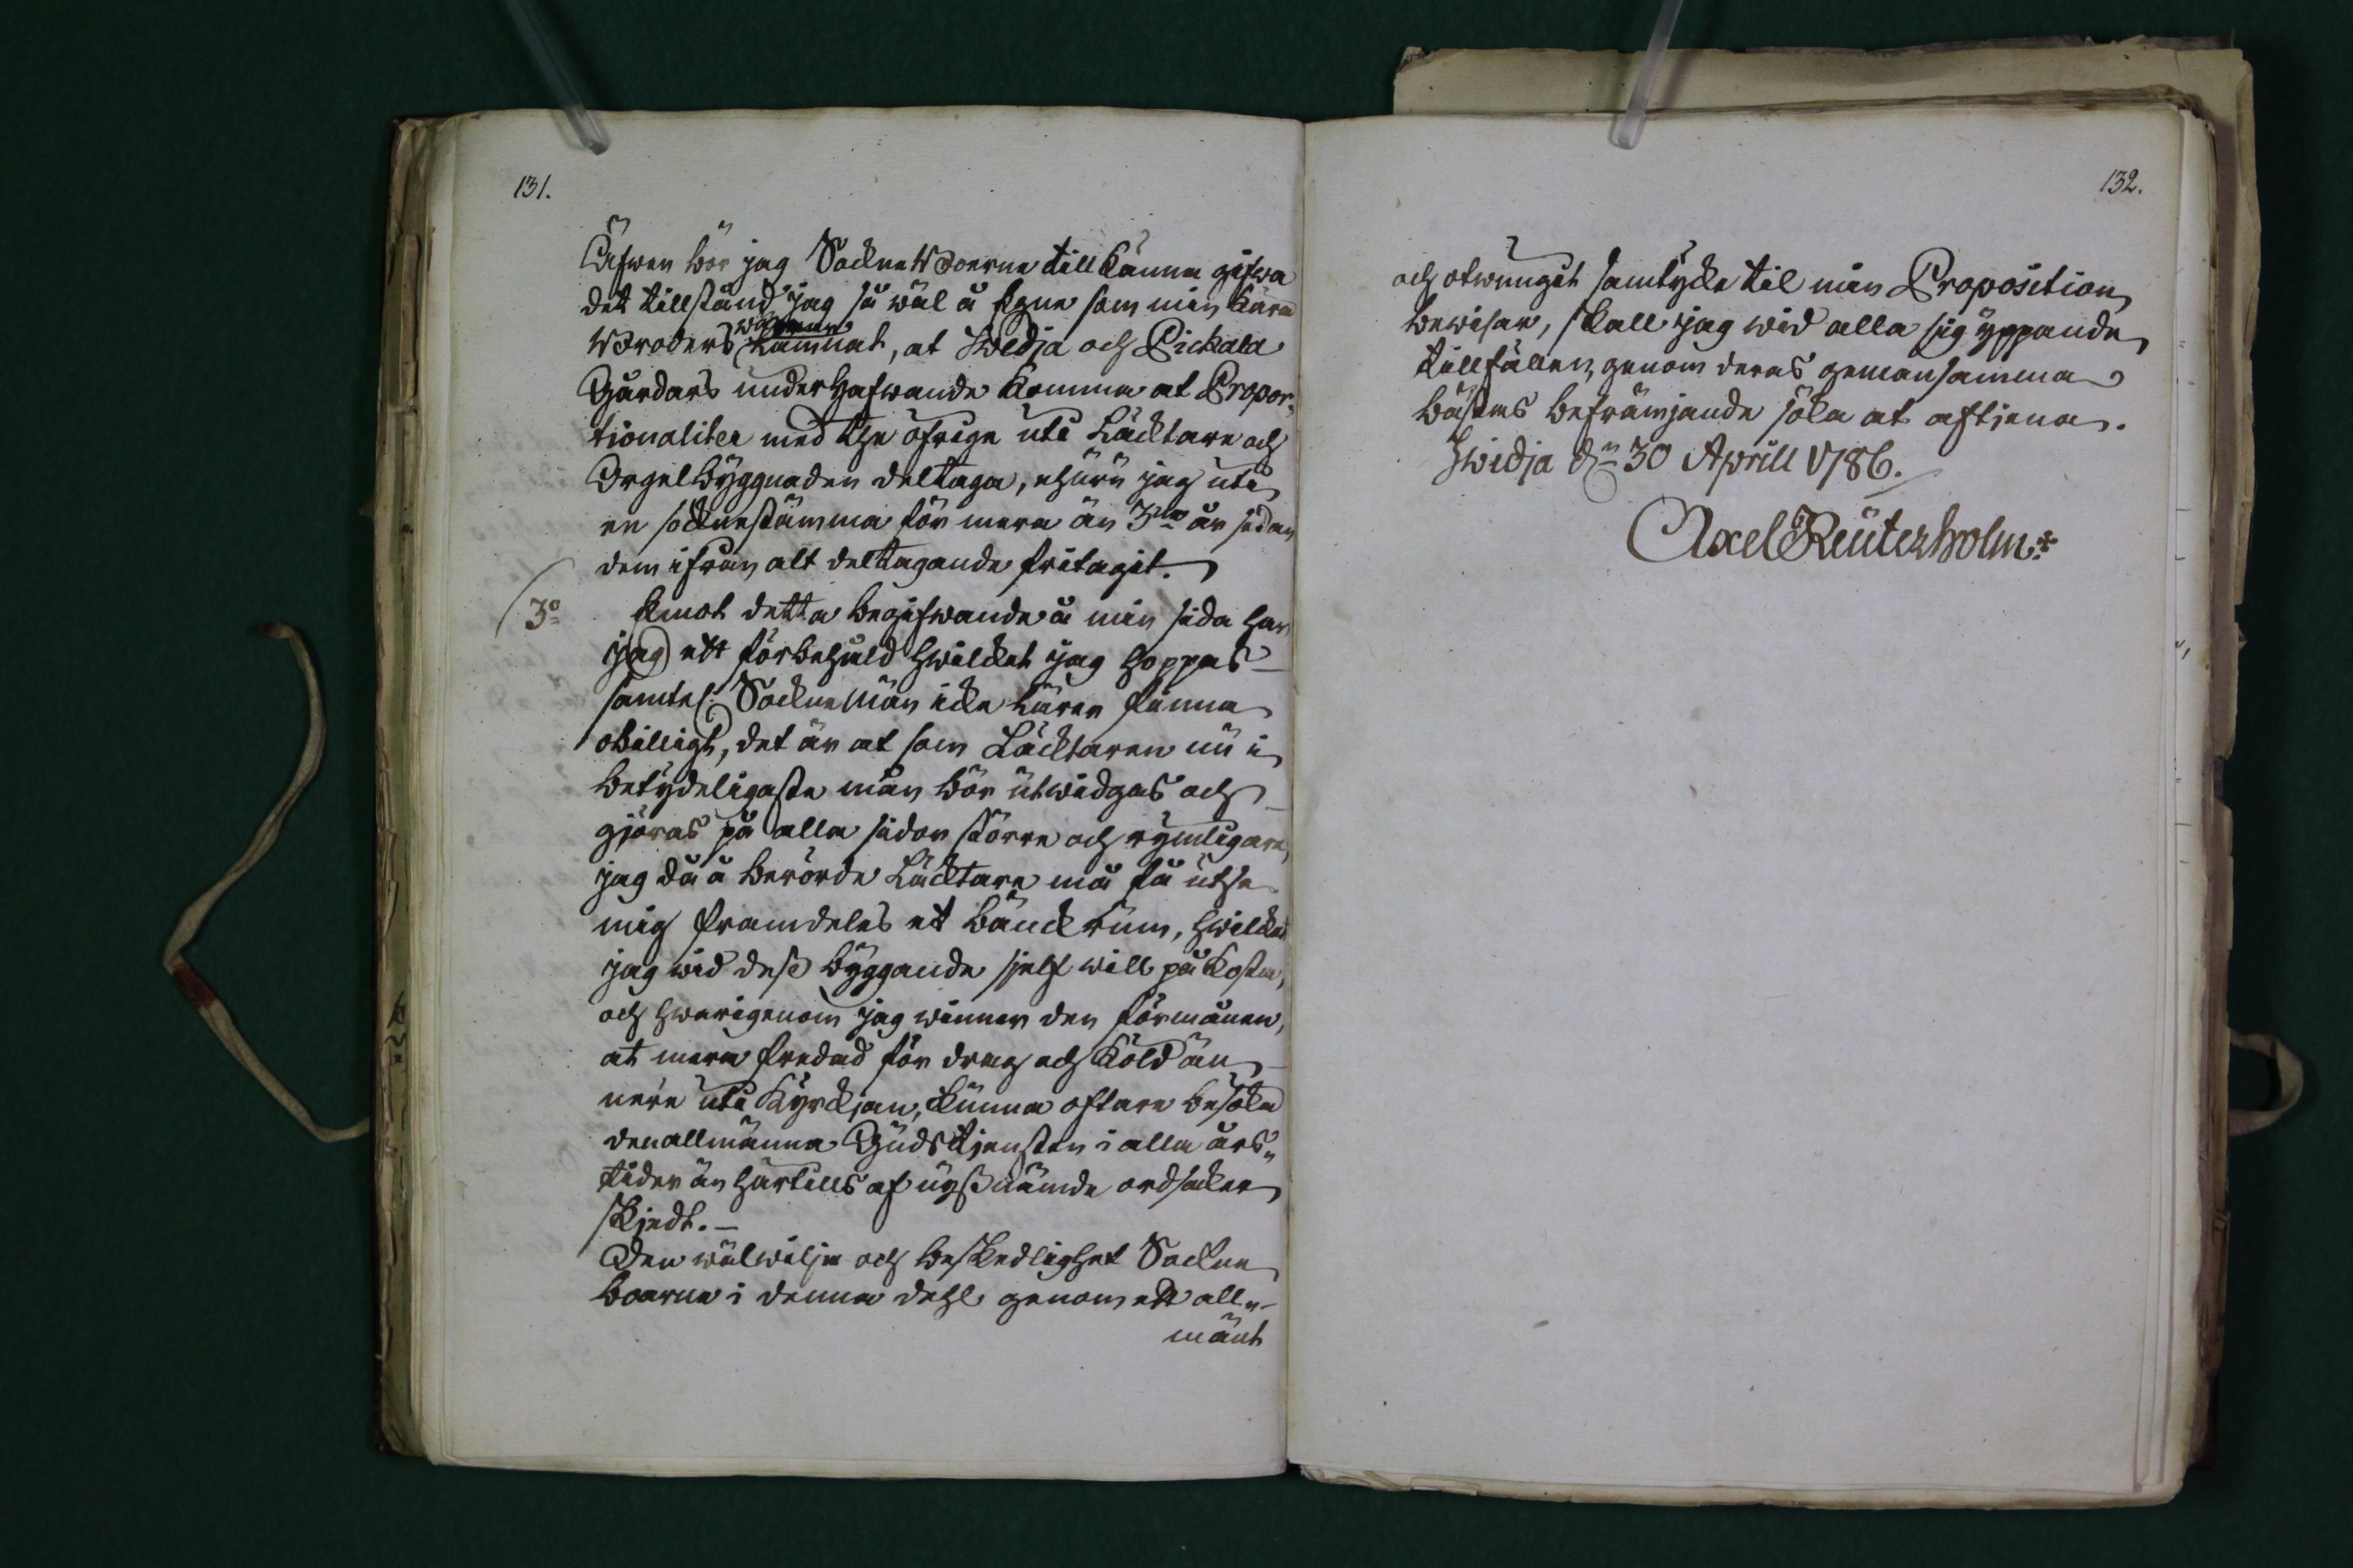 131.
Äfwen bör jag SockneBoerne till känna gifwa
det tillstånd jag så wäl å Egne som min kära
Broders wägnar lämnat, at Swidja och Pickala
Gårdars underhafwande komma at Propor-
tionaliter med the öfrige uti Läcktare och
Orgelbyggnaden deltaga, ehuru jag uti
en socknestämma för mera än 3ne år sedan
dem ifrån alt deltagande fritagit.
3o Emot detta begifwande å min sida har
jag ett förbehåld hwilcket jag hoppas
samtel: Sockne Män icke lärer finna
obilligt, det är at som Läcktaren nu i
betydeligaste mån bör utwidgas och
gjöras på alla sidor större och rymligare,
jag då å berörde Läcktare må få utse
mig framdeles et bänckrum, hwilcket
jag wid dess byggande sjelf will påkosta,
och hwarigenom jag winner den förmånen,
at mera fredad för drag och köld än
nere uti Kyrckjan, kunna oftare besöka
den allmänna Gudstjensten i alla års-
tider än härtills af nyssnämde ordsaker
skjedt. —
Den wälwilja och beskedlighet Sockne
boerne i denna dehl genom ett all-
mänt
132.
och otwungit samtycke til min Proposition
bewisar, skall jag wid alla sig yppande
tillfällen, genom deras gemensamma
bästas befrämjande söka at aftjena.
Swidja dn 30 Aprill 1786.
Axel Reuterholm